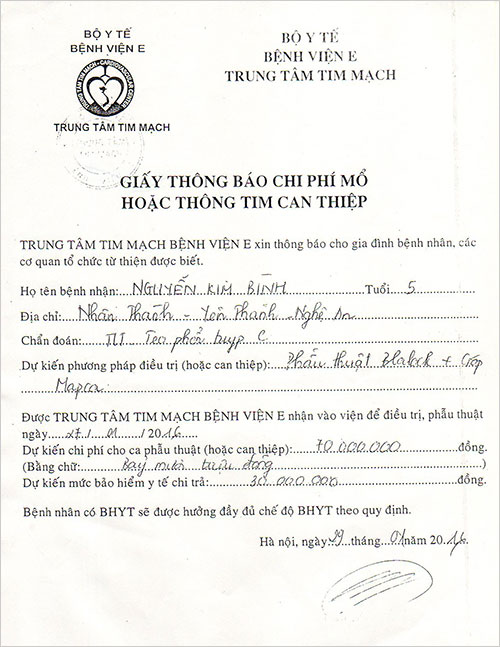 BỘ Y TẾ
BỆNH VIỆN E
TRUNG TÂM TIM MẠCH - CARDIOVASCULAR CENTER
TRUNG TÂM TIM MẠCH
BỘ Y TẾ
BỆNH VIỆN E
TRUNG TÂM TIM MẠCH
GIẤY THÔNG BÁO CHI PHÍ MỔ
HOẶC THÔNG TIM CAN THIỆP
TRUNG TÂM TIM MẠCH BỆNH VIỆN E xin thông báo cho gia đình bệnh nhân, các
cơ quan tổ chức từ thiện được biết.
Họ tên bệnh nhân: NGUYỄN KIM BÌNH Tuổi 5
Địa chỉ: Nhân Thành - Yên Thành - Nghệ An
Chẩn đoán: TLT Teo phổi typ C
Dự kiến phương pháp điều trị (hoặc can thiệp): Phẫu thuật Blalock + Cặp
Mapca
Được TRUNG TÂM TIM MẠCH BỆNH VIỆN E nhận vào viện để điều trị, phẫu thuật
ngày 27 / 01 / 2016
Dự kiến chi phí cho ca phẫu thuật (hoặc can thiệp): 70.000.000 đồng.
(Bằng chữ: Bảy mươi triệu đồng )
Dự kiến mức bảo hiểm y tế chi trả: 30.000.000 đồng.
Bệnh nhân có BHYT sẽ được hưởng đầy đủ chế độ BHYT theo quy định.
Hà nội, ngày 29 tháng 01 năm 2016